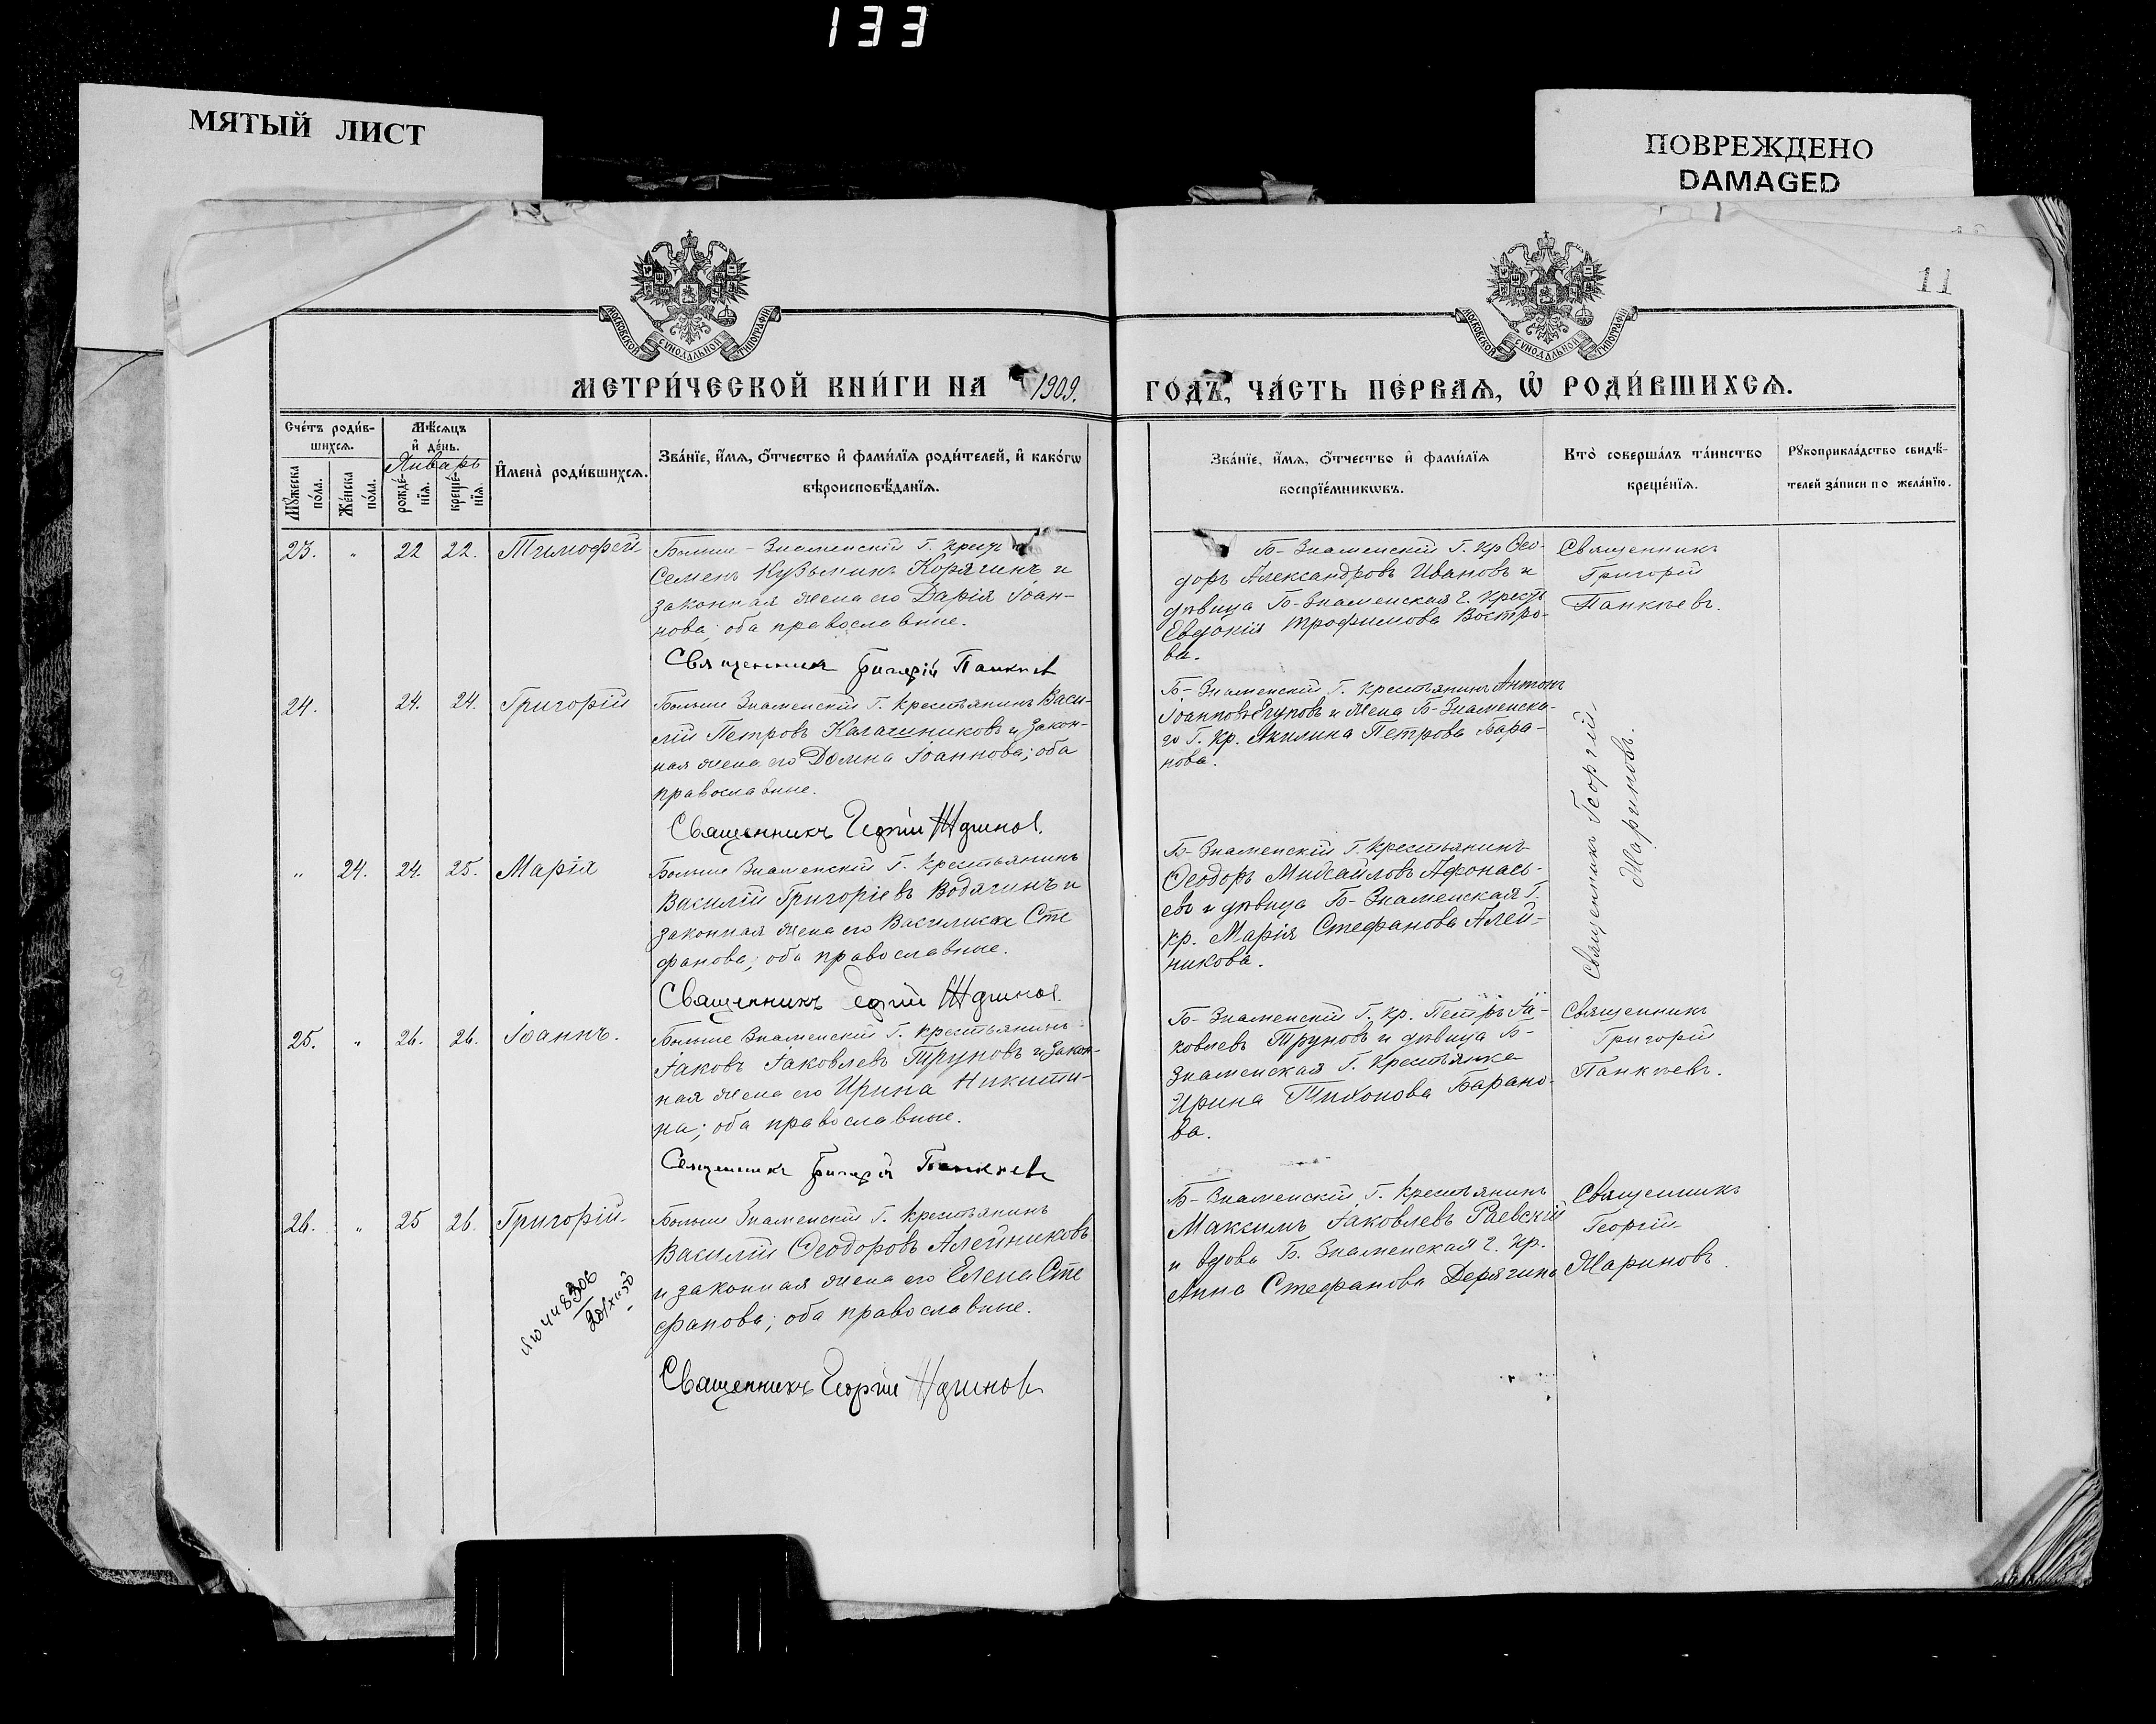 133
МЯТЫЙ ЛИСТ
ПОВРЕЖДЕНО
DAMAGED
11
МОСКОВСКОЙ СѴНОДАЛЬНОЙ ТИПОГРАФІИ
МОСКОВСКОЙ СѴНОДАЛЬНОЙ ТИПОГРАФІИ
МЕТРИ́ЧЕСКОЙ КНИ́ГИ НА 1909.
ГО́ДЪ, ЧА́СТЬ ПЕ́РВАЯ, Ѿ РОДИ́ВШИХСѦ.
Сче́тъ роди́в-
шихся.
Мꙋ́жеска
по́ла.
Же́нска
по́ла.
Мѣ́сяцъ
и҆ де́нь.
Январь
рожде́-
нїѧ.
креще́-
нїѧ.
И҆мена̀ роди́вшихсѧ.
Зва́нїе, и҆́мѧ, ѻ҆́тчество и҆ фами́лїѧ роди́телей, и҆ како́гѡ
вѣроисповѣ́данїѧ.
Зва́нїе, и҆́мѧ, ѻ҆́тчество и҆ фами́лїѧ
воспрїе́мникѡвъ.
Кто̀ соверша́лъ та́инство
креще́нїѧ.
Рꙋкоприкла́дство свидѣ́-
телей за́писи по жела́нїю.
23. „ 22 22. Тимофей
Больше-Знаменскій Г. крест
Семенъ Кузьминъ Корягинъ и
законная жена его Дарія Іоан-
нова; оба православные.
Священникъ Григорій Панкѣев
Б-Знаменскій Г. кр Ѳео-
доръ Александровъ Ивановъ и
дѣвица Б-Знаменская Г. крест
Евдокія Трофимова Востро-
ва.
Священникъ
Григорій
Панкѣевъ.
24. 24. 24. Григорій
Больше Знаменскій Г. крестьянинъ Васи-
лій Петровъ Калашниковъ и закон-
ная жена его Домна Іоаннова; оба
православные.
Священникъ Георгій
Б-Знаменскій Г. крестьянинъ Антонъ
Іоанновъ Егуновъ и жена Б-Знаменска-
го Г. кр. Акилина Петрова Бара-
нова.
Священникъ Георгій
Мариновъ.
„ 24. 24. 25. Марія
Больше Знаменскій Г. крестьянинъ
Василій Григоріевъ Водягинъ и
законная жена его Василиса Сте
фанова; оба православные.
Священникъ
Б-Знаменскій Г. крестьянинъ
Ѳеодоръ Михайловъ Афонась-
евъ и дѣвица Б-Знаменская Г.
кр. Марія Стефанова Алей-
никова.
25. „ 26. 26. Іоаннъ.
Больше Знаменскій Г. крестьянинъ
Іаковъ Іаковлевъ Труновъ и закон-
ная жена его Ирина Никити-
на; оба православные.
Священникъ Григорій Панкѣевъ
Б-Знаменскій Г. кр. Петръ Іа-
ковлевъ Труновъ и дѣвица Б-
Знаменская Г. крестьянка
Ирина Тихонова Барано-
ва.
Священникъ
Григорій
Панкѣевъ.
26. „ 25 26. Григорій.
Больше Знаменскій Г. крестьянинъ
Василій Ѳеодоровъ Алейниковъ
и законная жена его Елена Сте
фанова; оба православные.
Священникъ Георгій
Б-Знаменскій Г. крестьянинъ
Максимъ Іаковлевъ Раевскій
и вдова Б. Знаменская Г. кр.
Анна Стефанова Дерягина
Священникъ
Георгій
Мариновъ.